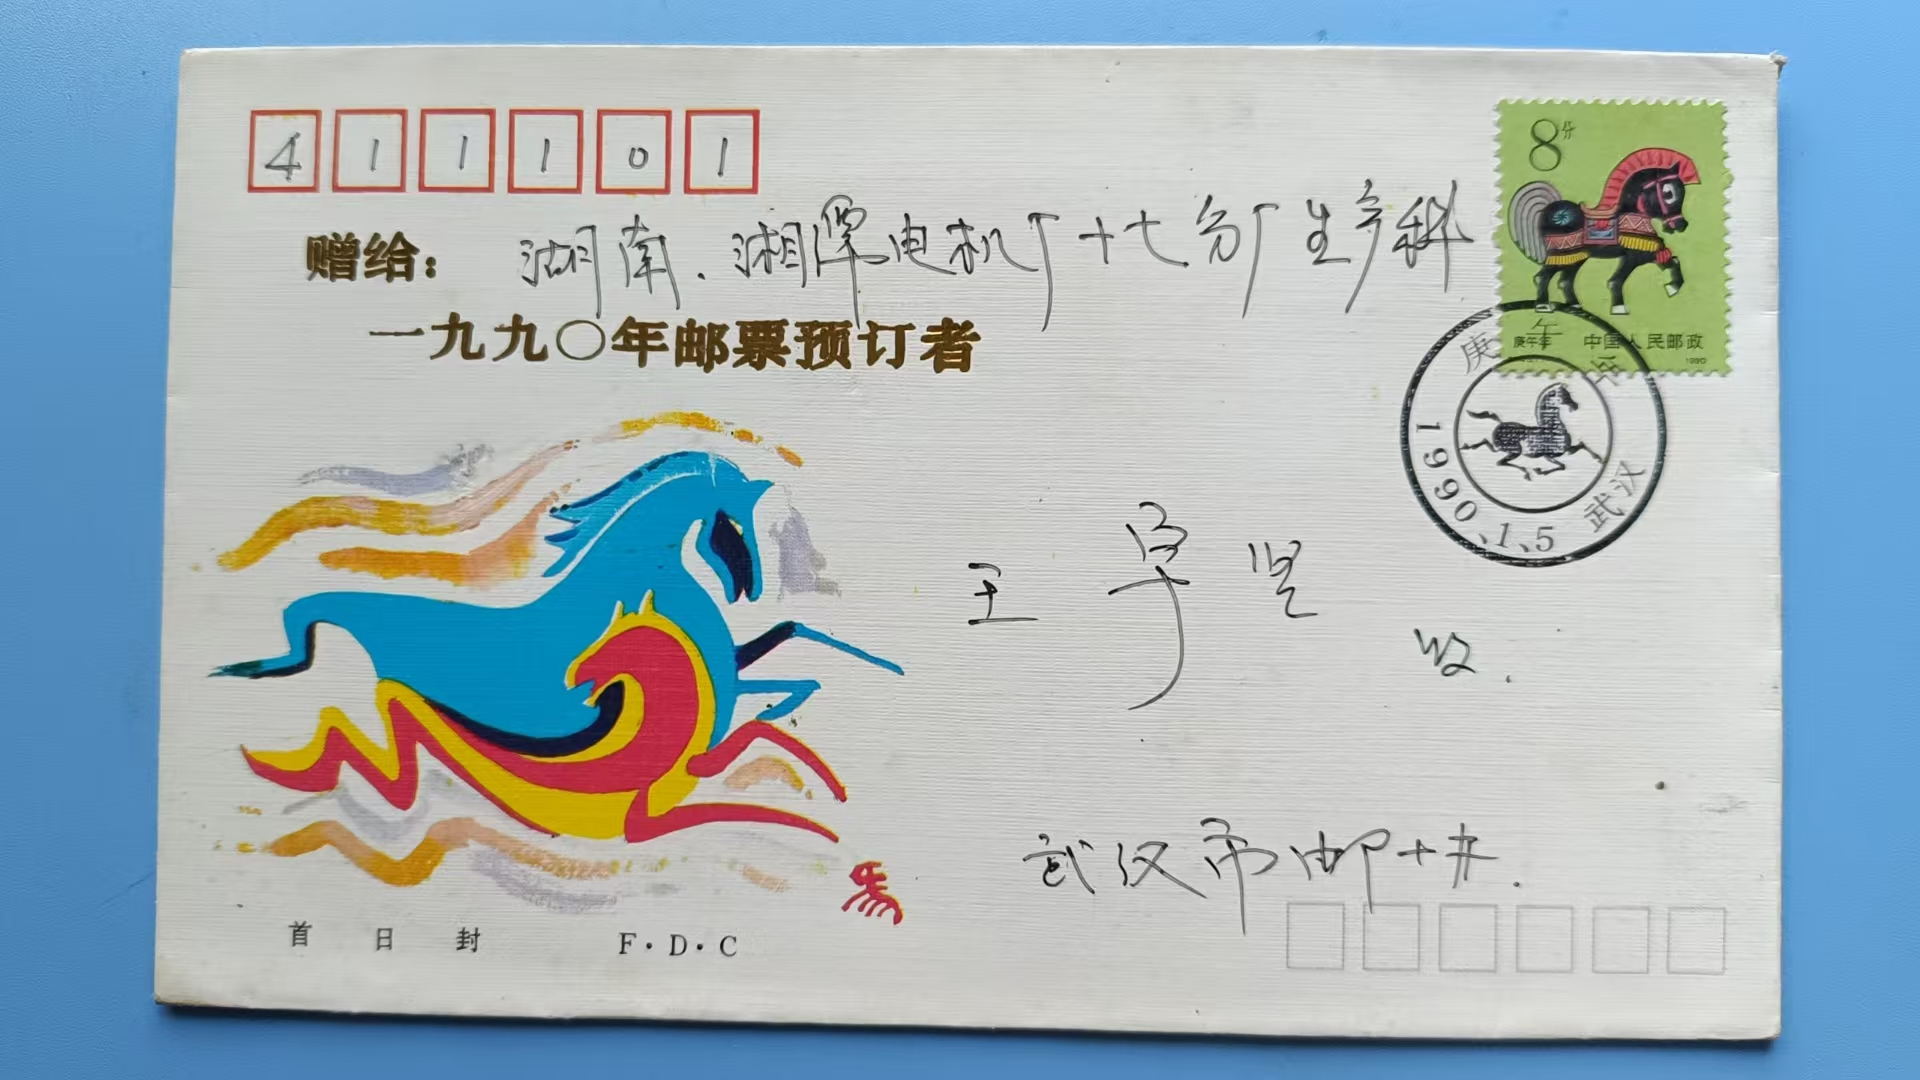 411101
赠给：
湖南.湘潭电机厂十七分厂生产科
一九九〇年邮票预订者
8分
庚午年
中国人民邮政
1990
庚午年
武汉
1990.1.5
王
贤
收.
武汉市邮
首日封 F·D·C